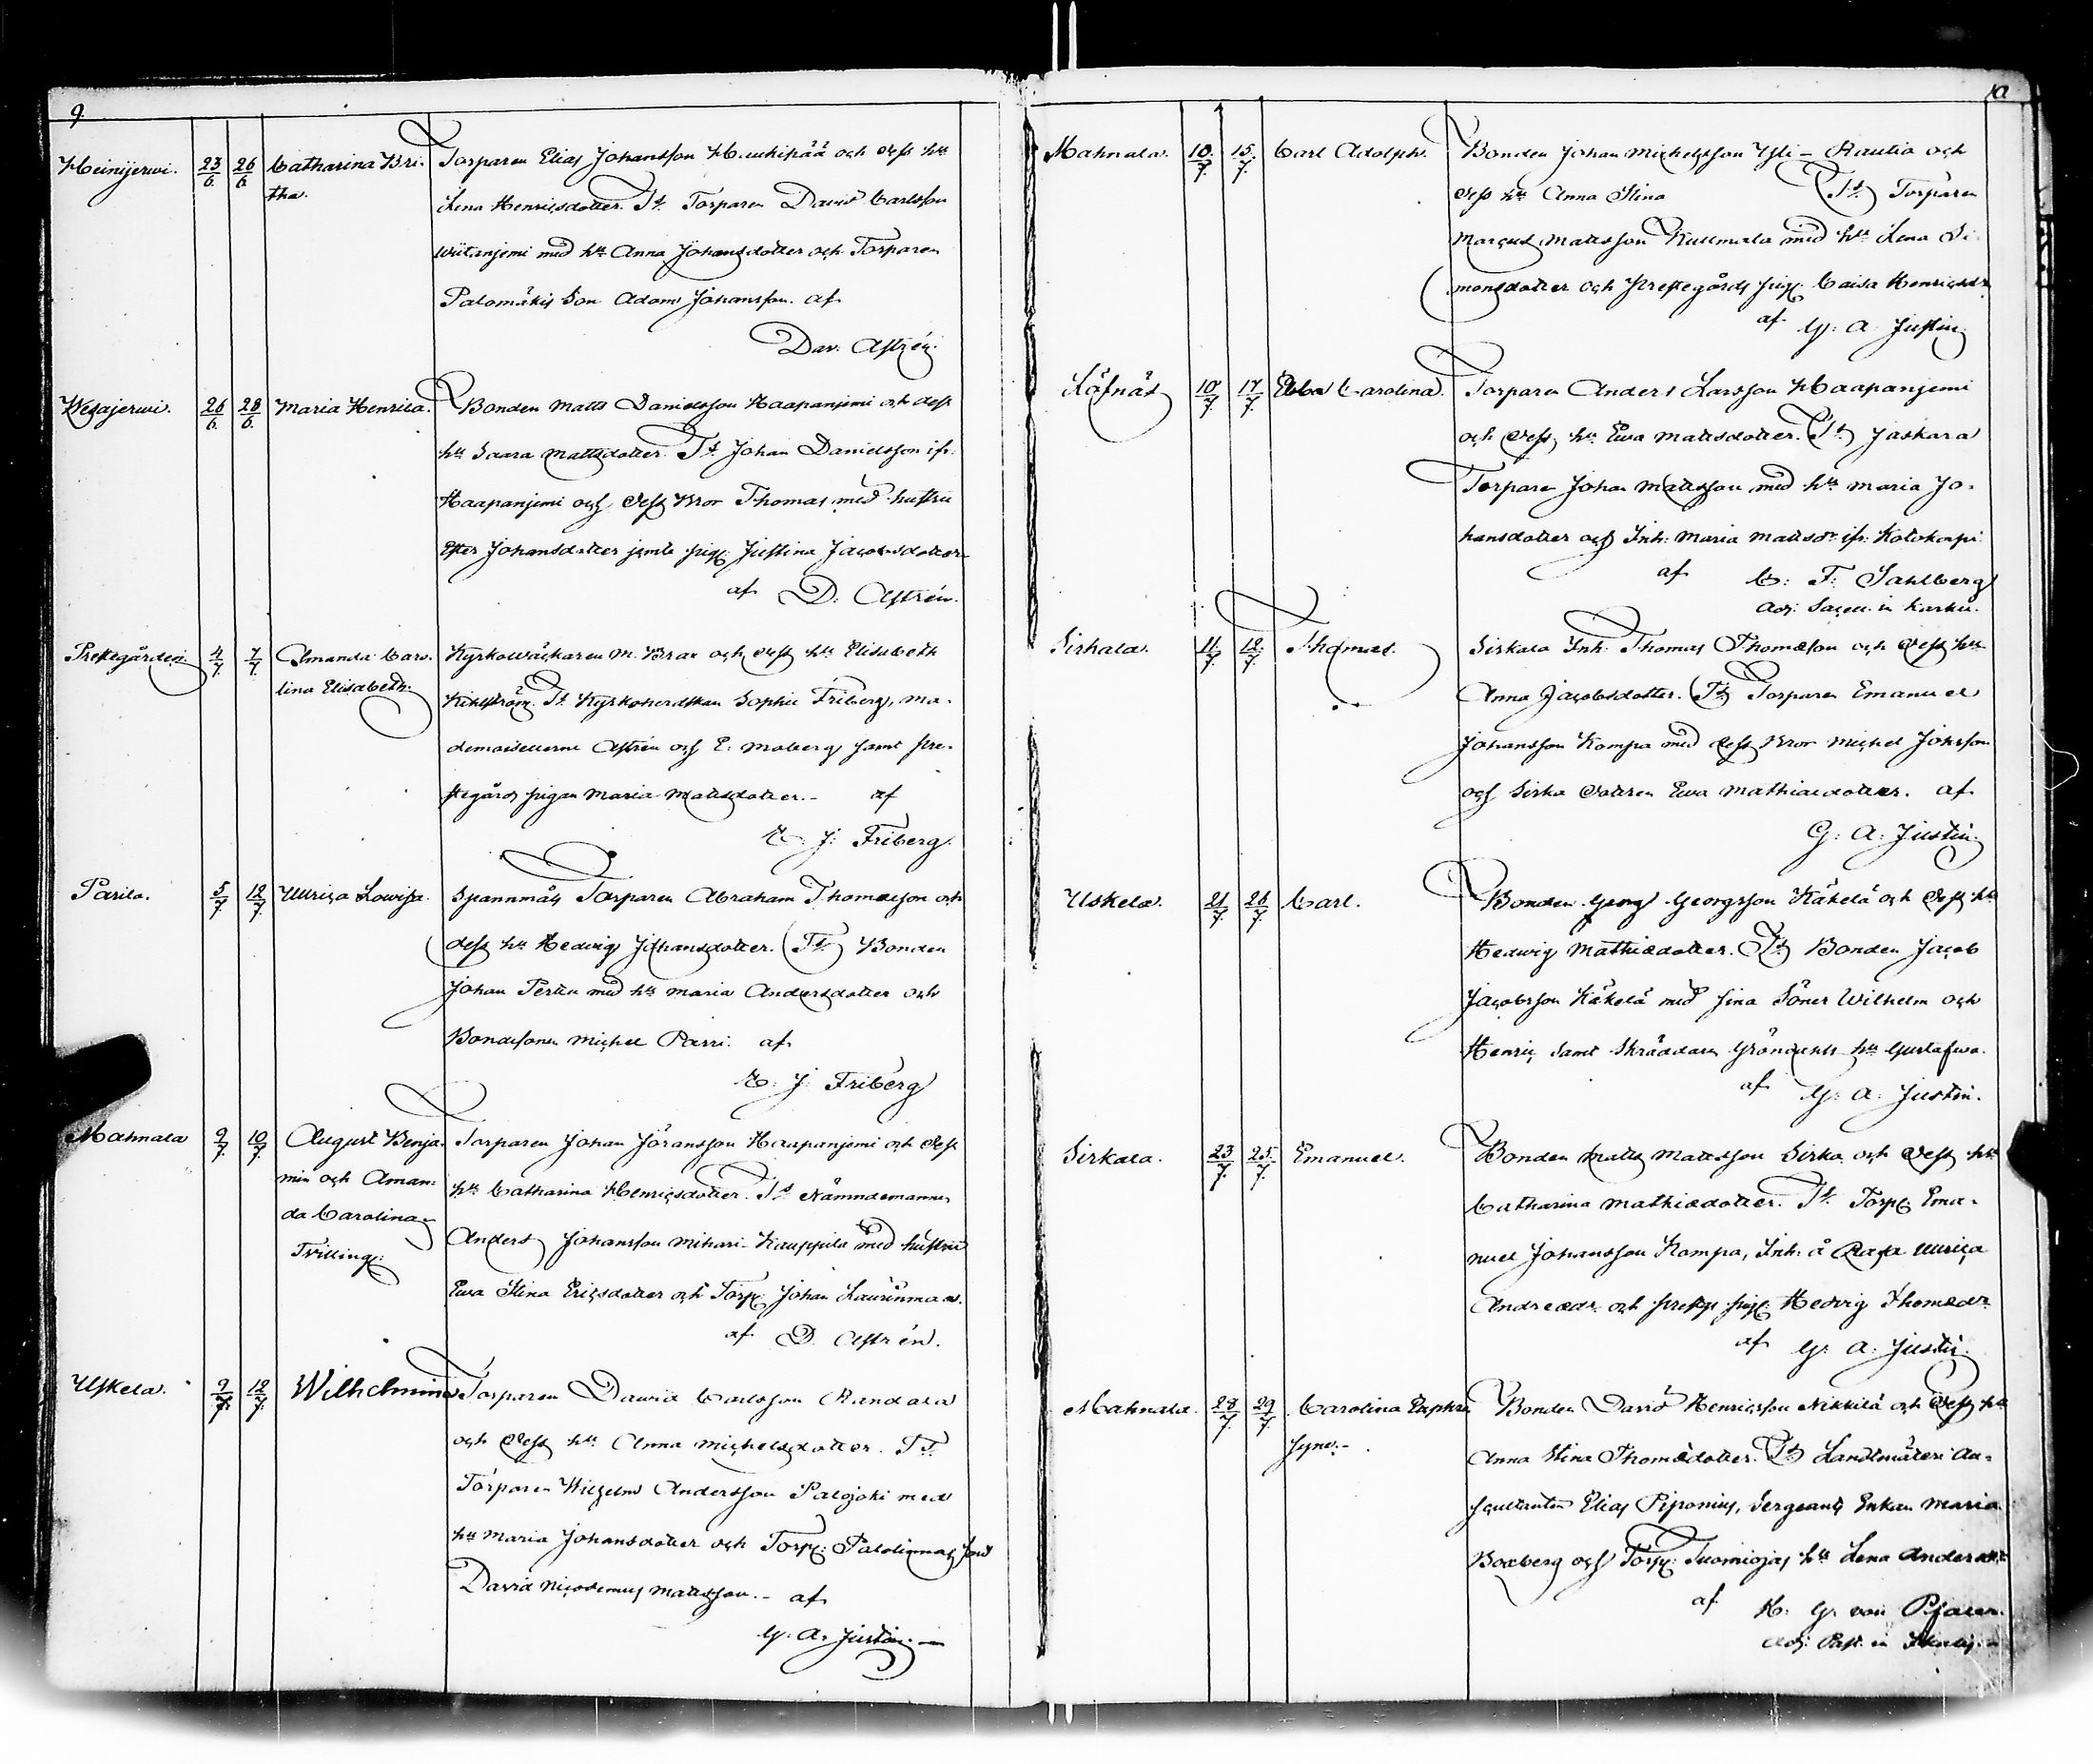 9.
Heinijerwi. 23/6. 26/6. Catharina Bri- Torparen Elias Johansson Haukipää och dess hu
tha. Lena Henricsdotter. Tt. Torparen David Carlsson
Wiitanjemi med hu Anna Johansdotter och Torparen
Palomäkis Son Adam Johansson. af
Dav. Astrén.
Wesajerwi. 26/6. 28/6. Maria Henrica. Bonden Matts Danielsson Haapanjemi och dess
hu Saara Mattsdotter. Tt Johan Danielsson ifr.
Haapanjemi och dess Bror Thomas med hustru
Ester Johansdotter jemte pig. Justina Jacobsdotter
af D. Astrén.
Prestegården 4/7. 7/7. Amanda Caro- Kyrkowäcktaren M. Brax och dess hu Elisabeth
lina Elisabeth. Kihlström. Tt. Kyrkoherdskan Sophie Friberg, ma-
demoisellerne Astrén och E. Moberg samt pre-
stegårds pigan Maria Mattsdotter.- af
E. J. Friberg.
Parila. 5/7. 12/7. Ulrica Lowisa. Spannmåls Torparen Abraham Thomasson och
dess hu Hedvig Johansdotter. Tt. Bonden
Johan Perttu med hu Maria Andersdotter och
Bondesonen Michel Parri. af
E. J. Friberg
Mahnala 9/7. 10/7. August Benja- Torparen Johan Jöransson Haapanjemi och dess
min och Aman- hu Catharina Henricsdotter. Tt Nämndemannen
da Carolina Anders Johansson Mihari-Kauppila med hustru
Tvilling: Ewa Stina Ericsdotter och Torp: Johan Laurinmaa.
af D. Astrén.
Uskela. 9/7. 12/7. Wilhelmina Torparen Dawid Carlsson Randala
och dess hu Anna Michelsdotter. Tt.
Torparen Wilhelm Andersson Palojoki med
hu Maria Johansdotter och Torp: Palolinnas son
David Nicodemus Mattsson.- af
G. A. Justin.
10
Mahnala. 10/7. 15/7. Carl Adolph. Bonden Johan Michelsson Yli-Rautia och
dess hu Anna Stina Tt. Torparen
Marcus Mattsson Kullmala med hu Lena Si-
monsdotter och prestegårds pig: Caisa Henricsdr
af G: A. Justin.
Läfnäs 10/7. 17/7. Ebba Carolina. Torparen Anders Larsson Haapanjemi
och dess hu Ewa Mattsdotter. Tt. Jaskara
Torpare Johan Mattsson med hu Maria Jo-
hansdotter och Inh: Maria Mattsdr ifr: Kotokorpi
af C: F: Sahlberg
Adj: Sacell. in Karku.
Sirkala. 11/7. 12/7. Thomas. Sirkala Inh: Thomas Thomasson och dess hu
Anna Jacobsdotter. Tt. Torparen Emanuel
Johansson Kompa med dess Bror Michel Johansson
och Sirka dottren Ewa Mathiaedotter. af
G: A: Justin.
Uskela. 21/7. 26/7. Carl. Bonden Georg Georgsson Käkelä och dess hu
Hedwig Mathiaedotter. Tt. Bonden Jacob
Jacobsson Käkelä med sina Söner Wilhelm och
Henric samt Skräddaren Gröndahls hu Gustafwa.
af G: A: Justin.
Sirkala. 23/7. 25/7. Emanuel. Bonden Matts Mattsson Sirka och dess hu
Catharina Mathiaedotter. Tt. Torp: Ema-
nuel Johansson Kompa, Inh: å Ulrica
Andreaedr och prestg: pig: Hedvig Thomaedr
af G: A: Justin.
Mahnala. 28/7. 29/7. Carolina Euphro- Bonden David Henricsson Nikkilä och dess hu
syne.- Anna Stina Thomædotter. Tt. Landtmäteri Au-
scultanten Elias Piponius, Sergeants Enkan Maria
Boxberg och Torp: Tuomiojas hu Lena Andersdr
af H. G. von Pfaler.
Adj: Past: in